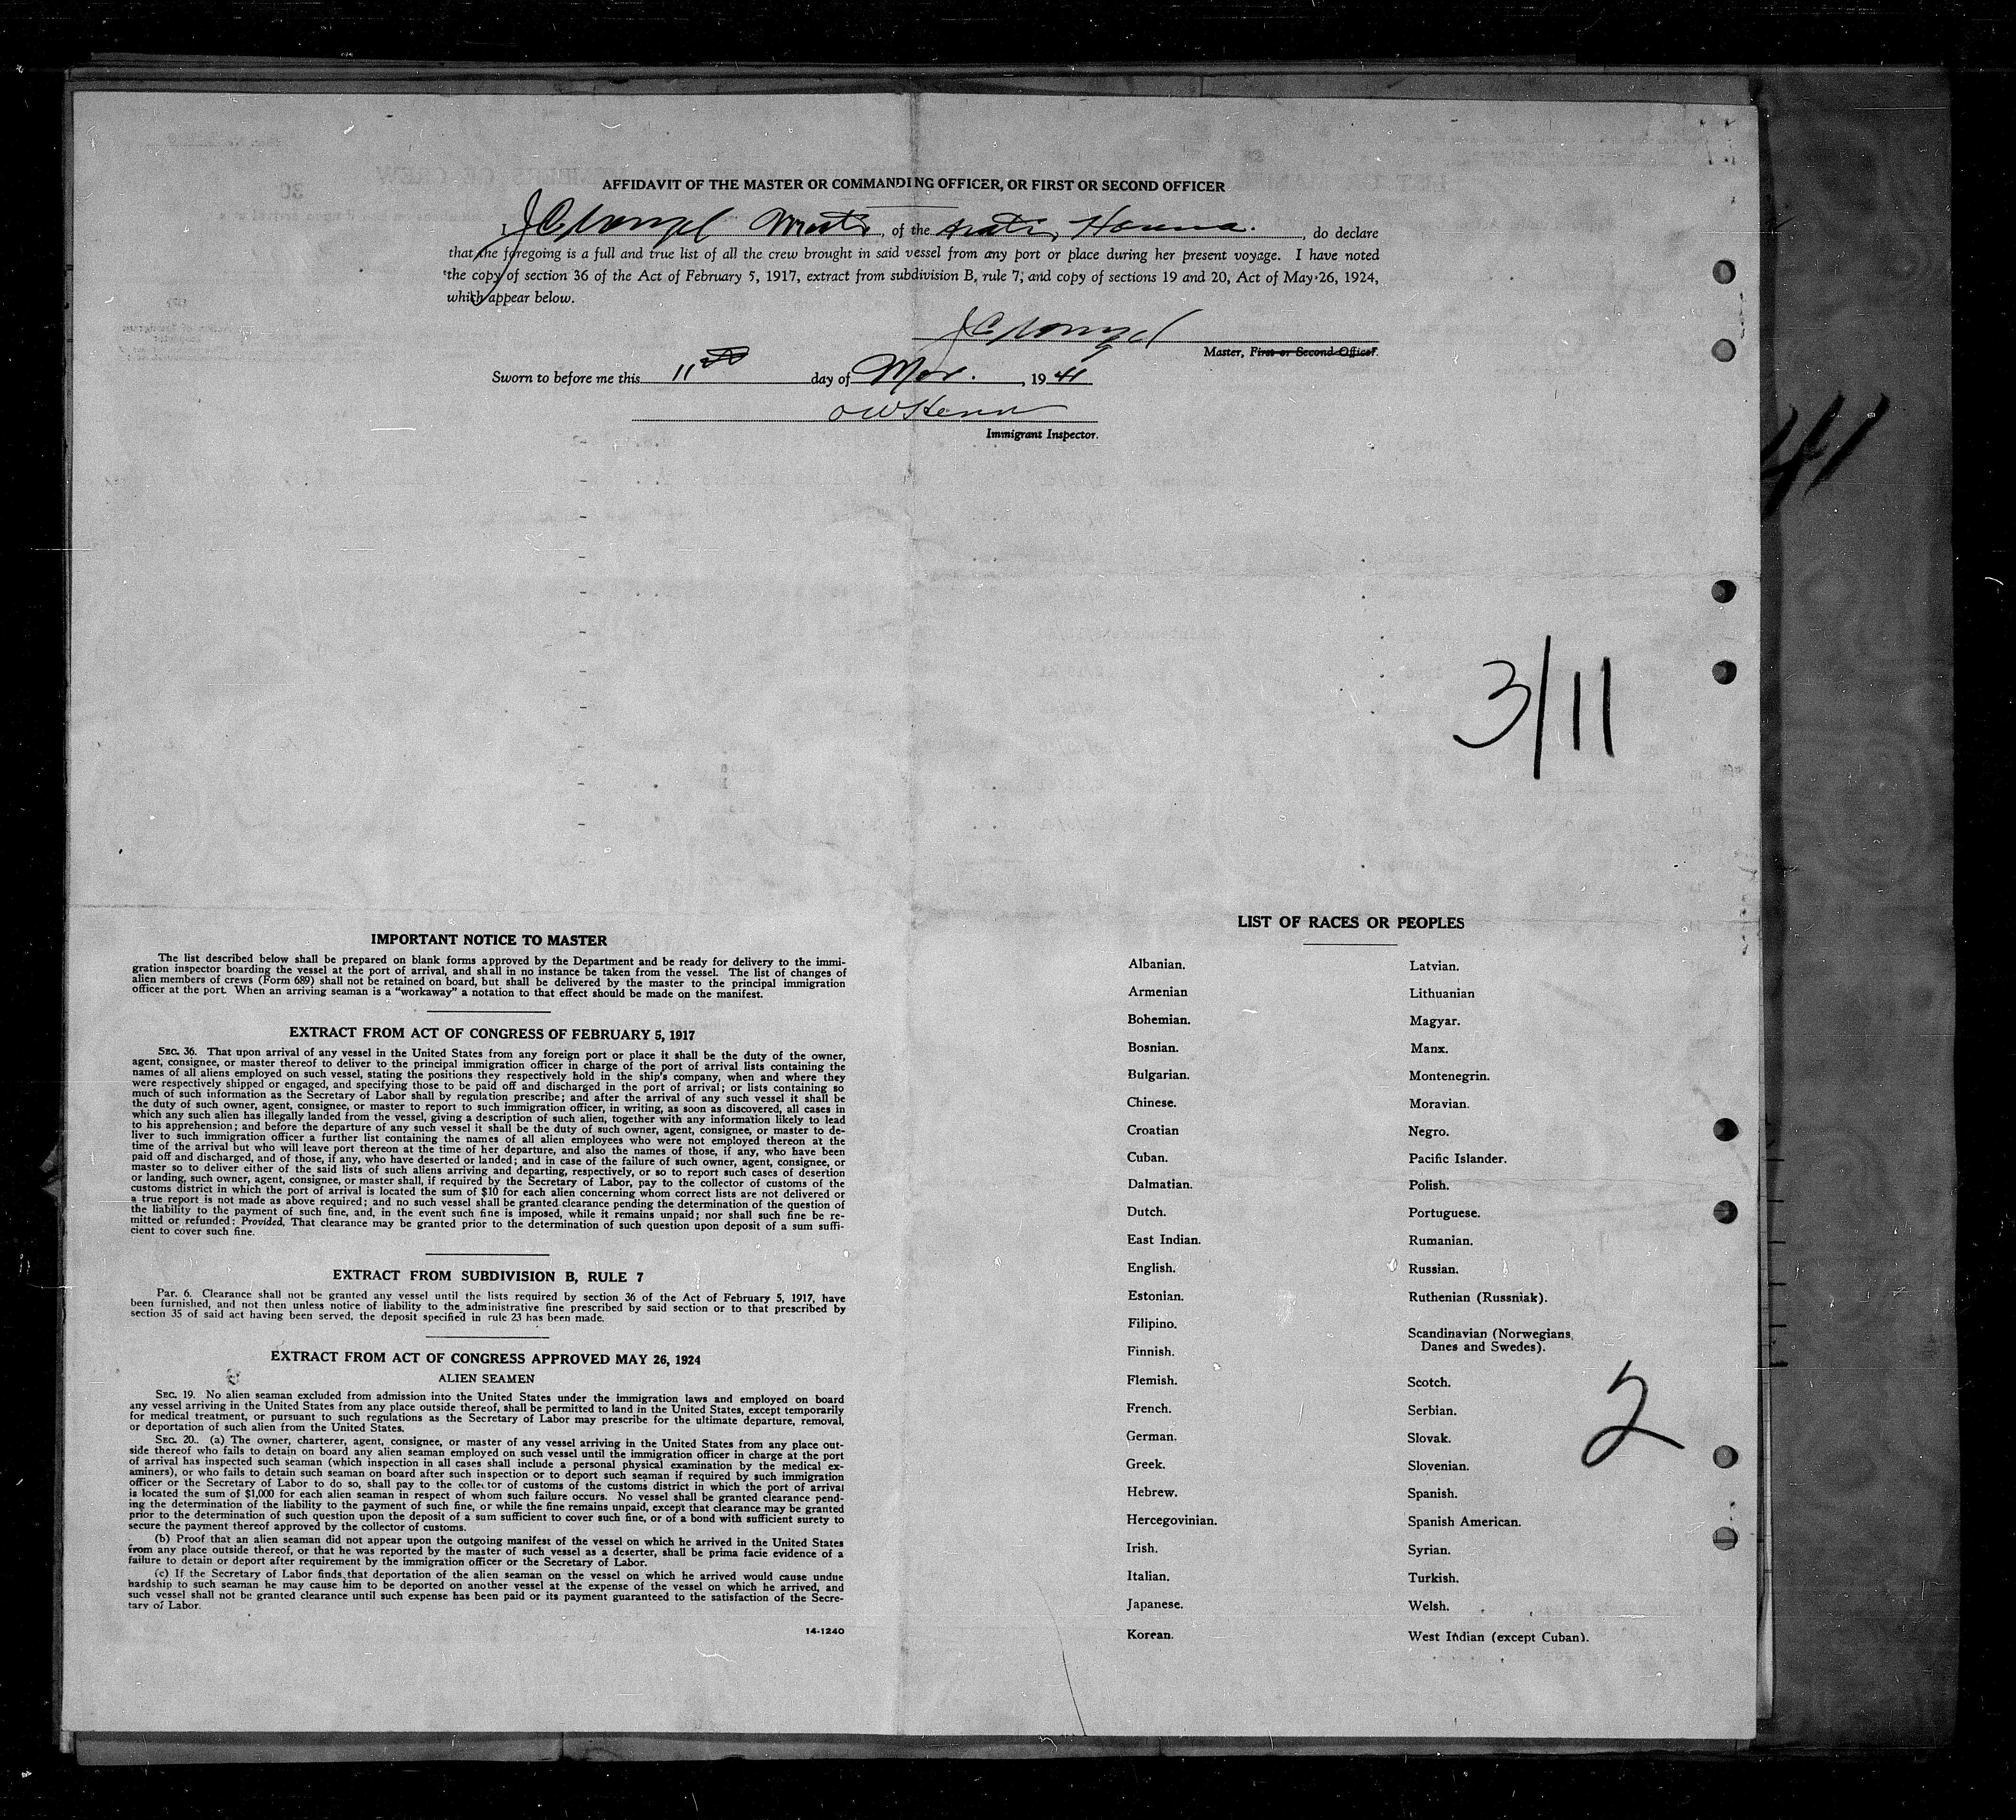 AFFIDAVIT OF THE MASTER OR COMMANDING OFFICER, OR FIRST OR SECOND OFFICER
I, Master, of the Hanna., do declare
that the foregoing is a full and true list of all the crew brought in said vessel from any port or place during her present voyage. I have noted
the copy of section 36 of the Act of February 5, 1917, extract from subdivision B, rule 7, and copy of sections 19 and 20, Act of May 26, 1924,
which appear below.
Master, First or Second Officer.
Sworn to before me this 11th day of Mar., 19 41
Immigrant Inspector.
41
3/11
IMPORTANT NOTICE TO MASTER
The list described below shall be prepared on blank forms approved by the Department and be ready for delivery to the immi-
gration inspector boarding the vessel at the port of arrival, and shall in no instance be taken from the vessel. The list of changes of
alien members of crews (Form 689) shall not be retained on board, but shall be delivered by the master to the principal immigration
officer at the port. When an arriving seaman is a “workaway” a notation to that effect should be made on the manifest.
EXTRACT FROM ACT OF CONGRESS OF FEBRUARY 5, 1917
SEC. 36. That upon arrival of any vessel in the United States from any foreign port or place it shall be the duty of the owner,
agent, consignee, or master thereof to deliver to the principal immigration officer in charge of the port of arrival lists containing the
names of all aliens employed on such vessel, stating the positions they respectively hold in the ship's company, when and where they
were respectively shipped or engaged, and specifying those to be paid off and discharged in the port of arrival; or lists containing so
much of such information as the Secretary of Labor shall by regulation prescribe; and after the arrival of any such vessel it shall be
the duty of such owner, agent, consignee, or master to report to such immigration officer, in writing, as soon as discovered, all cases in
which any such alien has illegally landed from the vessel, giving a description of such alien, together with any information likely to lead
to his apprehension; and before the departure of any such vessel it shall be the duty of such owner, agent, consignee, or master to de-
liver to such immigration officer a further list containing the names of all alien employees who were not employed thereon at the
time of the arrival but who will leave port thereon at the time of her departure, and also the names of those, if any, who have been
paid off and discharged, and of those, if any, who have deserted or landed; and in case of the failure of such owner, agent, consignee, or
master so to deliver either of the said lists of such aliens arriving and departing, respectively, or so to report such cases of desertion
or landing, such owner, agent, consignee, or master shall, if required by the Secretary of Labor, pay to the collector of customs of the
customs district in which the port of arrival is located the sum of $10 for each alien concerning whom correct lists are not delivered or
a true report is not made as above required; and no such vessel shall be granted clearance pending the determination of the question of
the liability to the payment of such fine, and, in the event such fine is imposed, while it remains unpaid; nor shall such fine be re-
mitted or refunded: Provided, That clearance may be granted prior to the determination of such question upon deposit of a sum suffi-
cient to cover such fine.
EXTRACT FROM SUBDIVISION B, RULE 7
Par. 6. Clearance shall not be granted any vessel until the lists required by section 36 of the Act of February 5, 1917, have
been furnished, and not then unless notice of liability to the administrative fine prescribed by said section or to that prescribed by
section 35 of said act having been served, the deposit specified in rule 23 has been made.
EXTRACT FROM ACT OF CONGRESS APPROVED MAY 26, 1924
ALIEN SEAMEN
SEC. 19. No alien seaman excluded from admission into the United States under the immigration laws and employed on board
any vessel arriving in the United States from any place outside thereof, shall be permitted to land in the United States, except temporarily
for medical treatment, or pursuant to such regulations as the Secretary of Labor may prescribe for the ultimate departure, removal,
or deportation of such alien from the United States.
SEC. 20. (a) The owner, charterer, agent, consignee, or master of any vessel arriving in the United States from any place out-
side thereof who fails to detain on board any alien seaman employed on such vessel until the immigration officer in charge at the port
of arrival has inspected such seaman (which inspection in all cases shall include a personal physical examination by the medical ex-
aminers), or who fails to detain such seaman on board after such inspection or to deport such seaman if required by such immigration
officer or the Secretary of Labor to do so, shall pay to the collector of customs of the customs district in which the port of arrival
is located the sum of $1,000 for each alien seaman in respect of whom such failure occurs. No vessel shall be granted clearance pend-
ing the determination of the liability to the payment of such fine, or while the fine remains unpaid, except that clearance may be granted
prior to the determination of such question upon the deposit of a sum sufficient to cover such fine, or of a bond with sufficient surety to
secure the payment thereof approved by the collector of customs.
(b) Proof that an alien seaman did not appear upon the outgoing manifest of the vessel on which he arrived in the United States
from any place outside thereof, or that he was reported by the master of such vessel as a deserter, shall be prima facie evidence of a
failure to detain or deport after requirement by the immigration officer or the Secretary of Labor.
(c) If the Secretary of Labor finds that deportation of the alien seaman on the vessel on which he arrived would cause undue
hardship to such seaman he may cause him to be deported on another vessel at the expense of the vessel on which he arrived, and
such vessel shall not be granted clearance until such expense has been paid or its payment guaranteed to the satisfaction of the Secre-
tary of Labor.
14-1240
LIST OF RACES OR PEOPLES
Albanian.
Armenian
Bohemian.
Bosnian.
Bulgarian.
Chinese.
Croatian
Cuban.
Dalmatian.
Dutch.
East Indian.
English.
Estonian.
Filipino.
Finnish.
Flemish.
French.
German.
Greek.
Hebrew.
Hercegovinian.
Irish.
Italian.
Japanese.
Korean.
Latvian.
Lithuanian
Magyar.
Manx.
Montenegrin.
Moravian.
Negro.
Pacific Islander.
Polish.
Portuguese.
Rumanian.
Russian.
Ruthenian (Russniak).
Scandinavian (Norwegians,
Danes and Swedes).
Scotch.
Serbian.
Slovak.
Slovenian.
Spanish.
Spanish American.
Syrian.
Turkish.
Welsh.
West Indian (except Cuban).
2